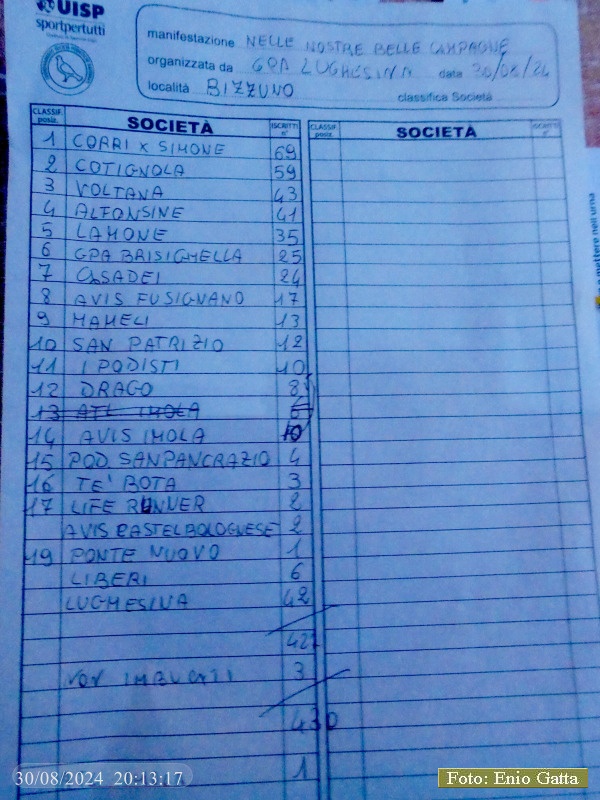 UISP
sportpertutti
manifestazione NELLE NOSTRE BELLE CAMPAGNE
organizzata da GPA LUGHESINA data 30/08/24
località BIZZUNO classifica Società
CLASSIF. posiz. SOCIETÀ ISCRITTI n° CLASSIF. posiz. SOCIETÀ ISCRITTI n°
1 CORRI X SIMONE 69
2 COTIGNOLA 59
3 VOLTANA 43
4 ALFONSINE 41
5 LAMONE 35
6 GPA BRISIGHELLA 25
7 CASADEI 24
8 AVIS FUSIGNANO 17
9 MAMELI 13
10 SAN PATRIZIO 12
11 I PODISTI 10
12 DRAGO 8
13 ATL IMOLA 6
14 AVIS IMOLA 10
15 POD. SANPANCRAZIO 4
16 TE' BOTA 3
17 LIFE RUNNER 2
AVIS CASTELBOLOGNESE 2
19 PONTE NUOVO 1
LIBERI 6
LUGHESINA 42
427
3
430
1
a mettere nell'urna
30/08/2024 20:13:17
Foto: Enio Gatta